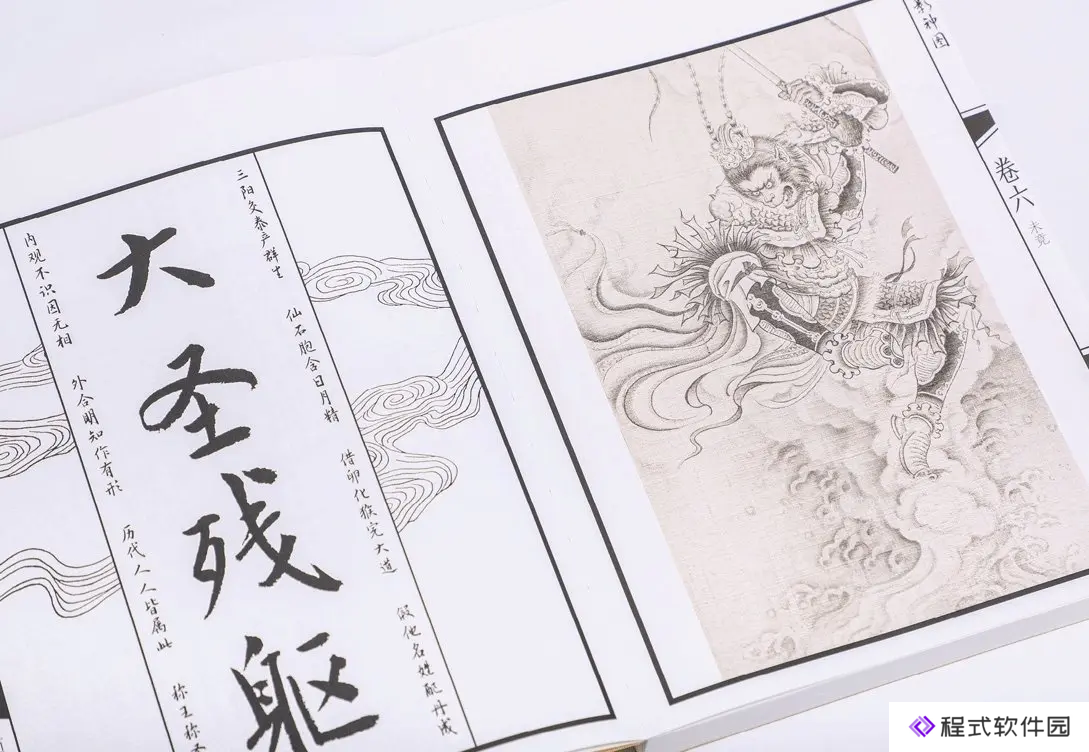 影神图
卷六
未竟
三阳交泰产群生
仙石胞含日月精
借卵化猴完大道
假他名姓配丹成
大圣残躯
内观不识因无相
外合明知作有形
历代人人皆属此
称王称圣
程式软件园